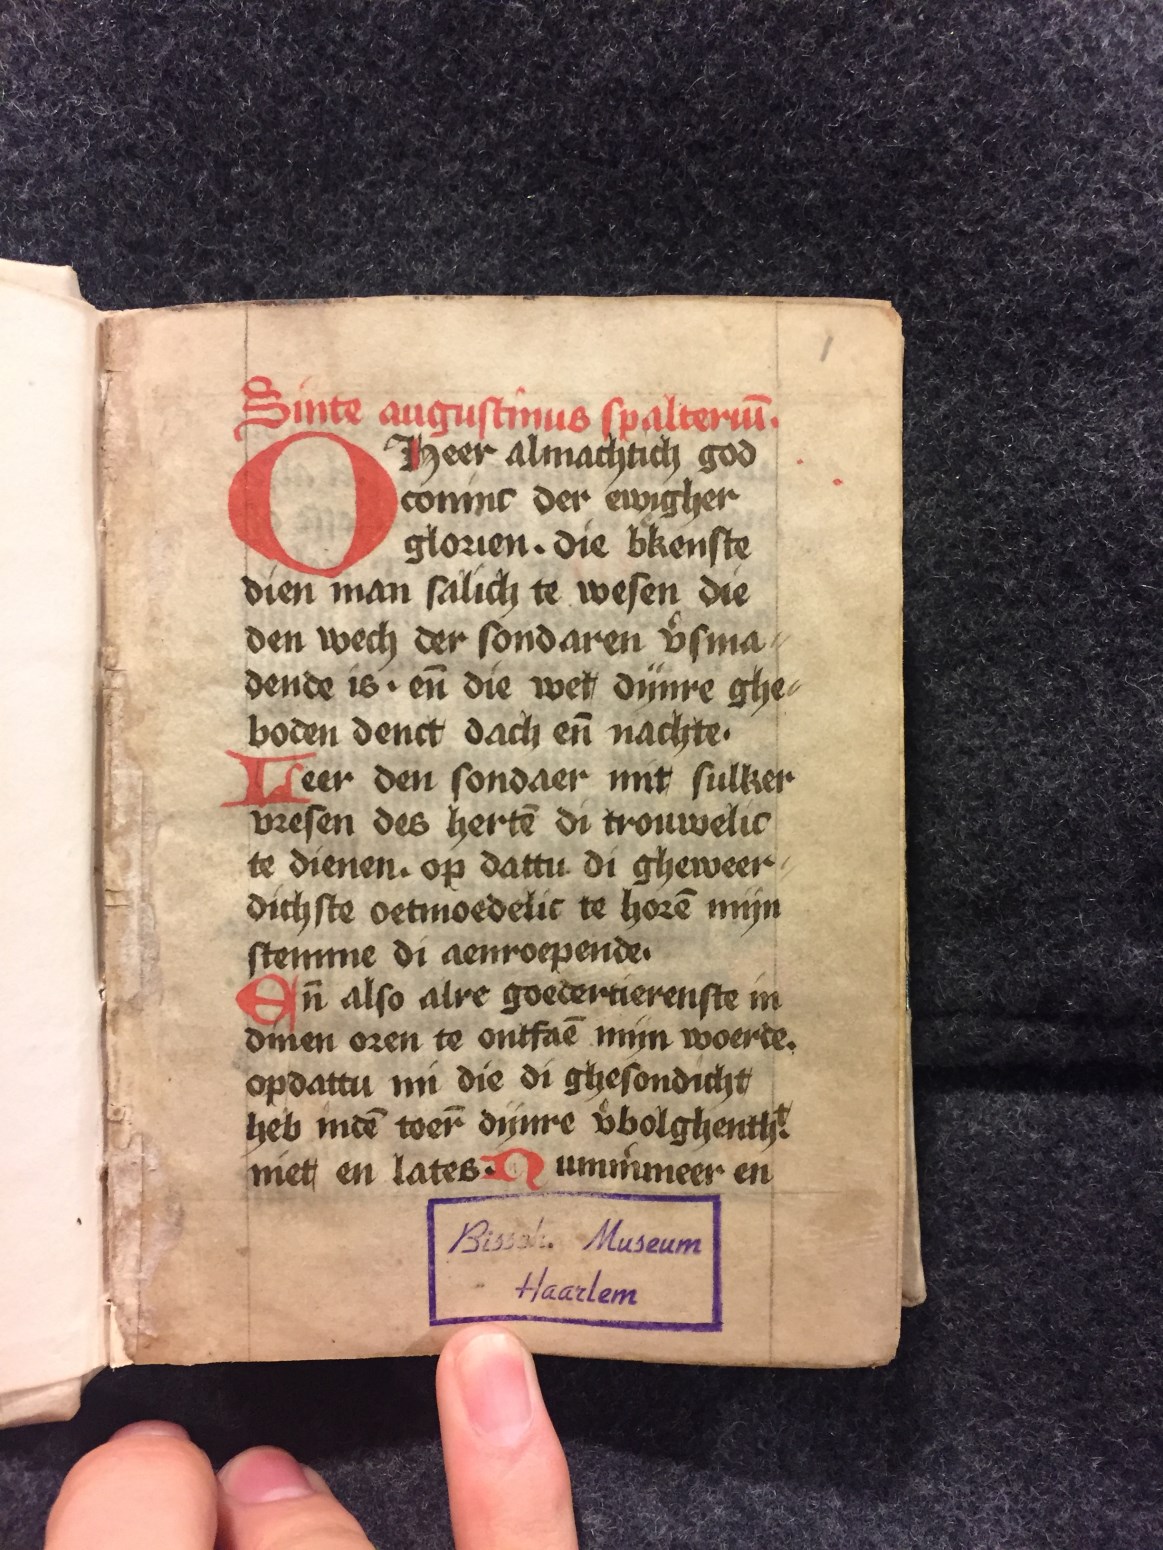 1
Sinte augustinus spalteriū.
O Heer almachtich god
coninc der ewigher
glorien. die bkenste
dien man salich te wesen die
den wech der sondaren v̊sma⸗
dende is. en̄ die wet dijnre ghe⸗
boden denct dach en̄ nachte.
Leer den sondaer mit sulker
vresen des hertē di trouwelic
te dienen. op dattu di gheweer⸗
dichste oetmoedelic te horē mijn
stemme di aenroepende.
En̄ also alre goedertierenste in
dinen oren te ontfaē mijn woerde.
opdattu mi die di ghesondicht
heb indē toer̄ dijnre v̊bolghenth.
niet en lates. Nummmeer en
Bissch. Museum
Haarlem